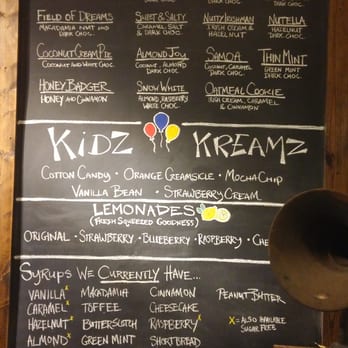 FIELD OF DREAMS
MACADAMIA NUT AND
DARK CHOC.
SWEET & SALTY
CARAMEL, SALT
& DARK CHOC.
NUTTY IRISHMAN
IRISH CREAM &
HAZELNUT
NUTELLA
HAZELNUT
DARK CHOC.
COCONUT CREAM PIE
COCONUT AND WHITE CHOC.
ALMOND JOY
COCONUT, ALMOND
DARK CHOC.
SAMOA
COCONUT, CARAMEL
DARK CHOC.
THIN MINT
GREEN MINT
DARK CHOC.
HONEY BADGER
HONEY AND CINNAMON
SNOW WHITE
ALMOND, RASPBERRY
WHITE CHOC.
OATMEAL COOKIE
IRISH CREAM, CARAMEL
& CINNAMON
KiDZ KREAMZ
COTTON CANDY • ORANGE CREAMSICLE • MOCHA CHIP
VANILLA BEAN • STRAWBERRY CREAM
LEMONADES
(FRESH SQUEEZED GOODNESS)
ORIGINAL • STRAWBERRY • BLUEBERRY • RASPBERRY • CHE
SYRUPS WE CURRENTLY HAVE...
VANILLA x MACADAMIA CINNAMON PEANUT BUTTER
CARAMEL x TOFFEE CHEESECAKE
HAZELNUT x BUTTERSCOTCH RASPBERRY x X = ALSO AVAILABLE
SUGAR FREE
ALMOND x GREEN MINT SHORTBREAD